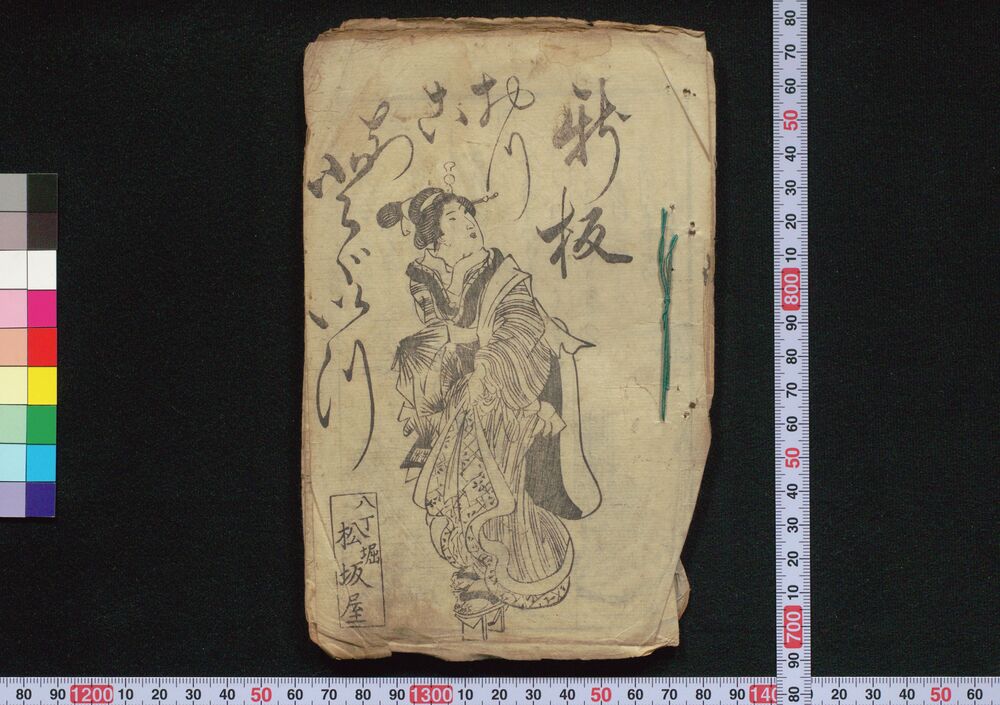 新板
おり
こみ
どゞいつ
八丁堀
松坂屋
80 70 60 50 40 30 20 10 800 90 80 70 60 50 40 30 20 10 700 90 80
80 90 1200 10 20 30 40 50 60 70 80 90 1300 10 20 30 40 50 60 70 80 90 140 20 30 40 50 60